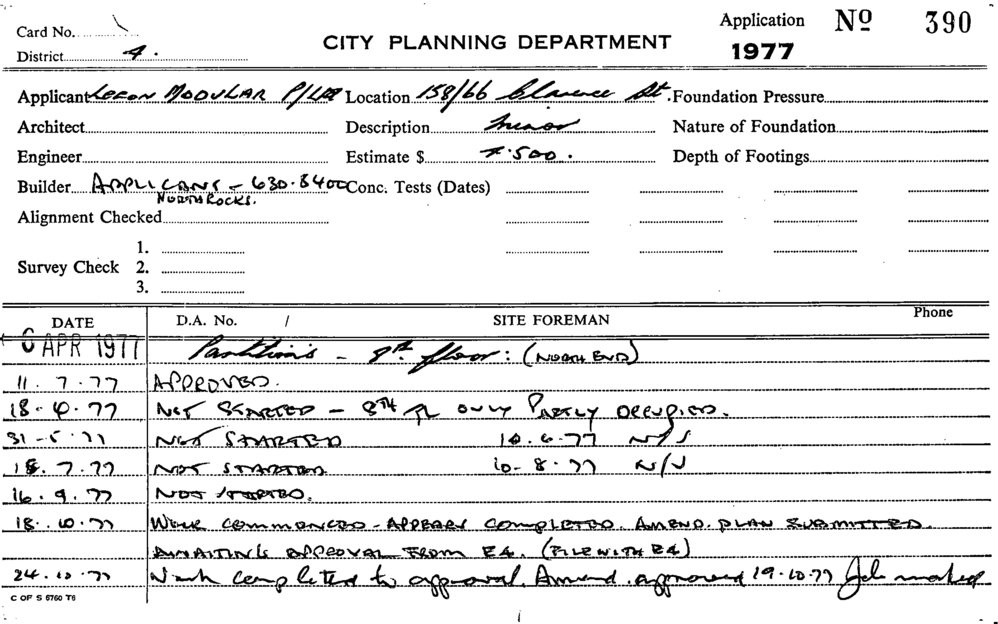 Card No.
District 4.
CITY PLANNING DEPARTMENT
Application Nº 390
1977
Applicant MODULAR P/Ltd Location 158/66 Clarence St. Foundation Pressure
Architect Description Minor Nature of Foundation
Engineer Estimate $ 7.500. Depth of Footings
Builder APPLICANT - 630.8400 Conc. Tests (Dates)
NORTH ROCKS.
Alignment Checked
Survey Check 1.
2.
3.
DATE D.A. No. / SITE FOREMAN Phone
6 APR 1977 Partitions - 8th floor: (NORTH END)
11.7.77 APPROVED.
18.4.77 NOT STARTED - 8TH FL ONLY PARTLY OCCUPIED.
31-5.77 NOT STARTED 10.6.77 N/S
18.7.77 NOT STARTED 10-8.77 N/S
16.9.77 NOT STARTED.
18.10.77 WORK COMMENCED - APPEARS COMPLETED. AMEND. PLAN SUBMITTED.
AWAITING APPROVAL FROM E4. (FILE WITH E4)
24.10.77 Work completed to approval. Amend. approved 19.10.77 Job marked
C OF S 6760 T6